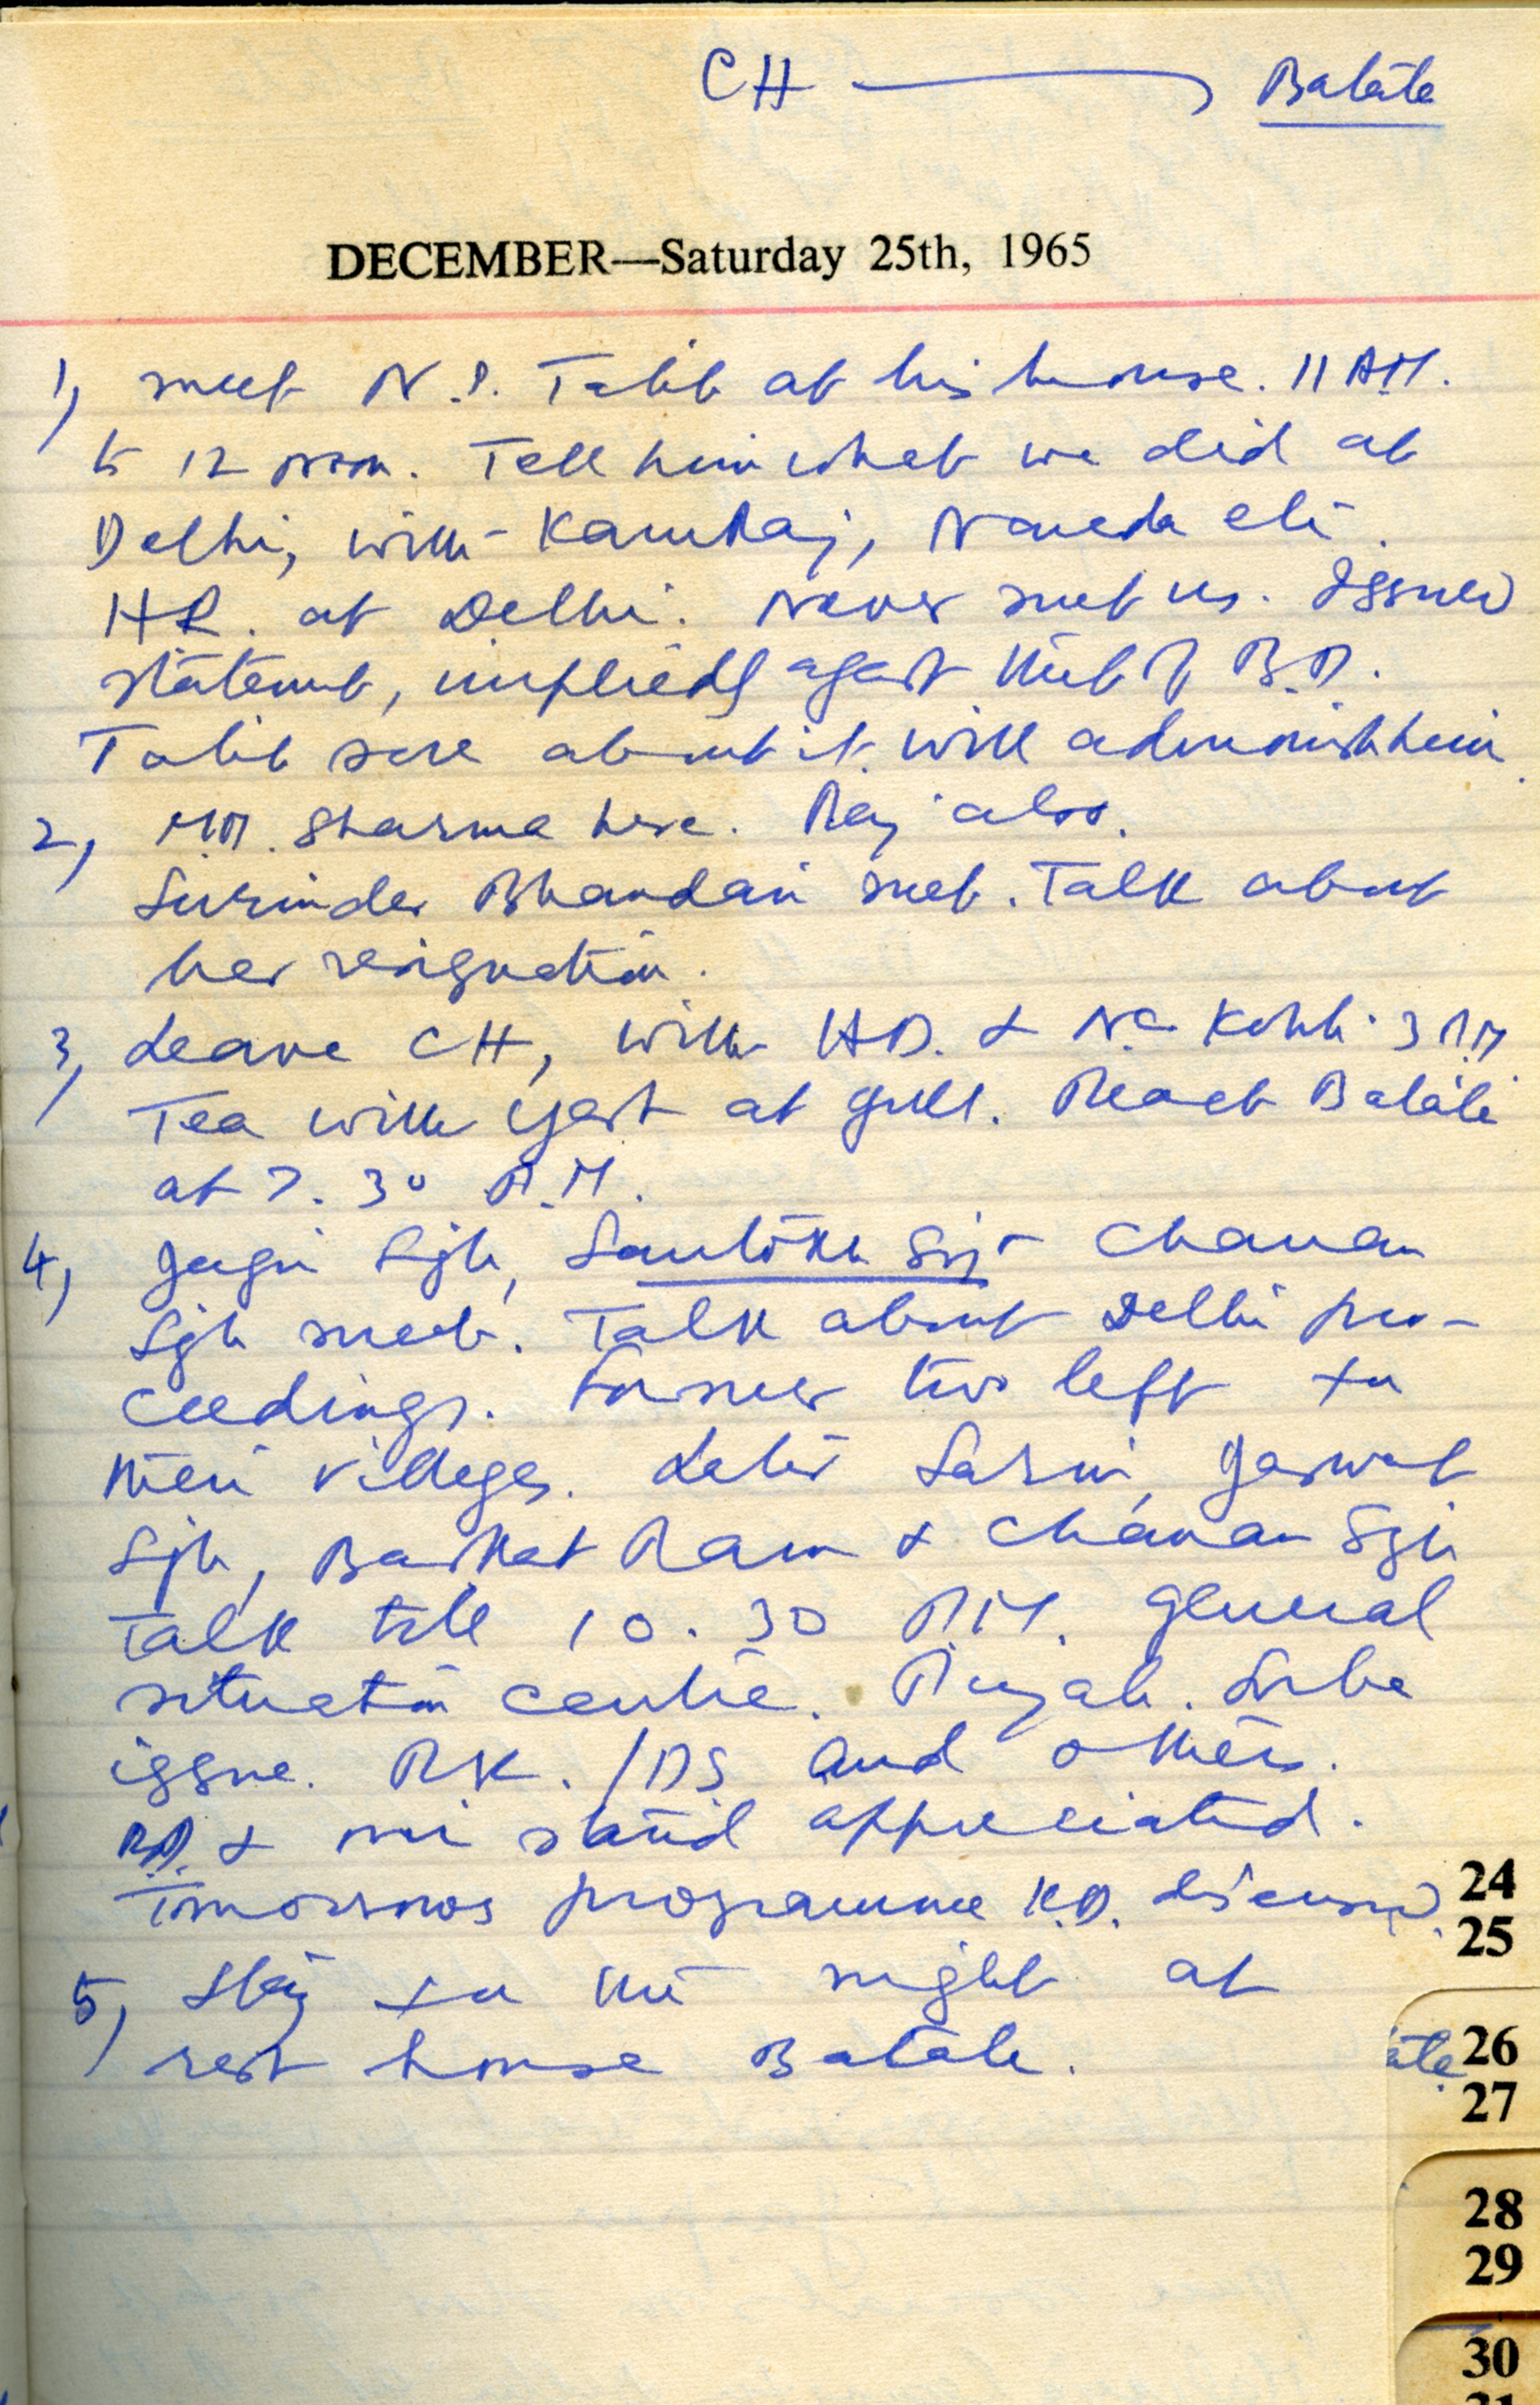 CH ——— Batala
DECEMBER—Saturday 25th, 1965
1, meet N.S. Talib at his house. 11 AM.
to 12 noon. Tell him what we did at
Delhi, with Kamraj, Naneda etc.
HR. at Delhi. Never met us. Issued
statement, impliedly against that of P.P.
Talib sore about it. Will admonish him.
2, M.M. Sharma here. Raj also.
Surinder Bhandari met. Talk about
her resignation.
3, Leave CH, with HD. & N.C. Kohli 3 P.M
Tea with Yash at Jull. Reach Batala
at 7.30 P.M.
4, Jagir Sgh, Santokh Sgh Chanan
Sgh meet. Talk about Delhi pro-
ceedings. Former two left for
their villages. Later Sarwi, Jaswant
Sgh, Barkat Ram & Chanan Sgh
Talk till 10.30 P.M. General
situation centre. Punjab. Suba
issue. RK. /DS and others.
& our stand appreciated.
Tomorrows programme discussed.
5, Stay for the night at
rest house Batala.
24
25
26
27
28
29
30
31